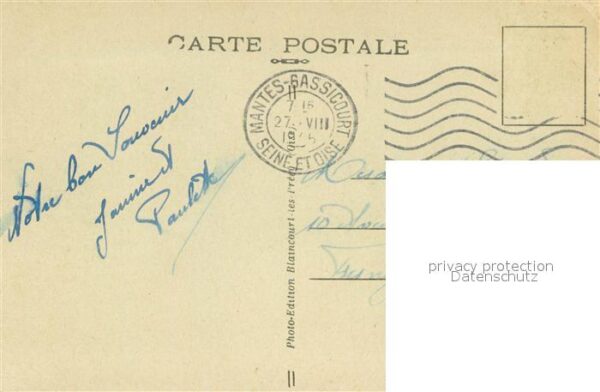 CARTE POSTALE
MANTES-GASSICOURT
7 15
27 VIII
SEINE ET OISE
Notre bon Souvenir
Janine et
Paulette
Photo-Edition Blaincourt-les-Précy (Oise)
privacy protection
Datenschutz